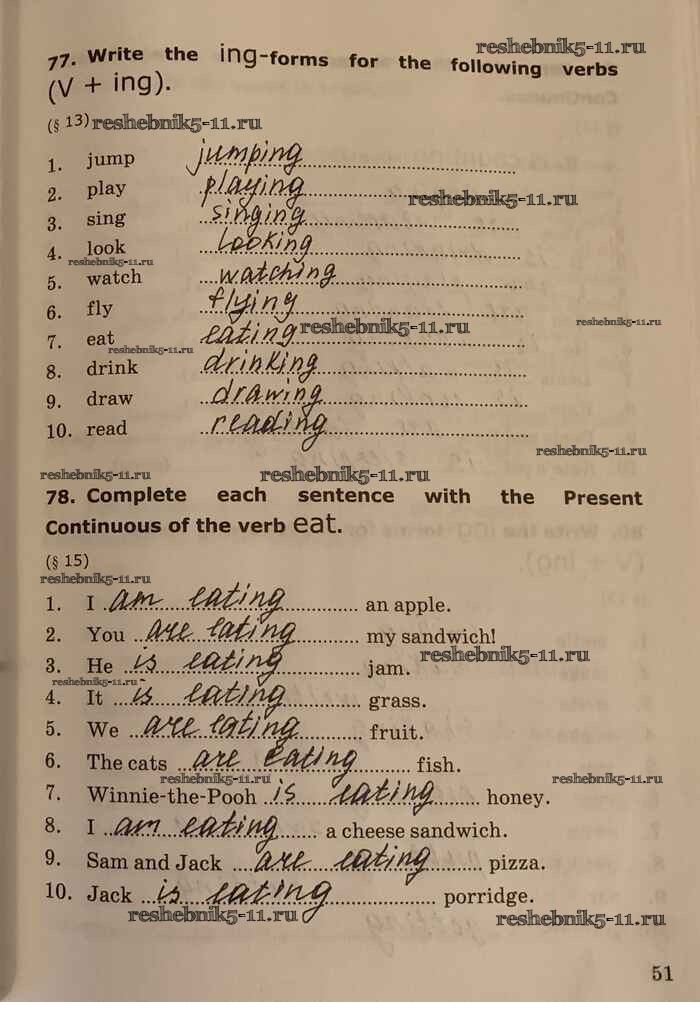 reshebnik5-11.ru
77. Write the ing-forms for the following verbs
(V + ing).
(§ 13) reshebnik5-11.ru
1. jump jumping
2. play playing
reshebnik5-11.ru
3. sing singing
4. look looking
reshebnik5-11.ru
5. watch watching
6. fly flying
reshebnik5-11.ru
7. eat eating reshebnik5-11.ru
reshebnik5-11.ru
8. drink drinking
9. draw drawing
10. read reading
reshebnik5-11.ru
reshebnik5-11.ru reshebnik5-11.ru
78. Complete each sentence with the Present
Continuous of the verb eat.
(§ 15)
reshebnik5-11.ru
1. I am eating an apple.
2. You are eating my sandwich!
reshebnik5-11.ru
3. He is eating jam.
reshebnik5-11.ru
4. It is eating grass.
5. We are eating fruit.
6. The cats are eating fish.
reshebnik5-11.ru reshebnik5-11.ru
7. Winnie-the-Pooh is eating honey.
8. I am eating a cheese sandwich.
9. Sam and Jack are eating pizza.
10. Jack is eating porridge.
reshebnik5-11.ru reshebnik5-11.ru
51